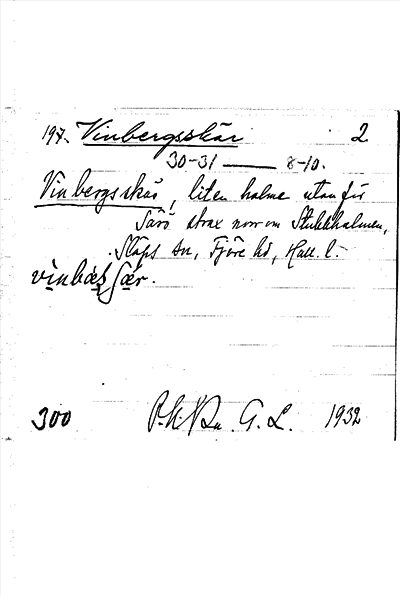 197. Vinbergsskär 2
30-31 — 8-10.
Vinbergsskär, liten holme utanför
Särö strax norr om Stubbholmen,
Släps sn, Fjäre hd, Hall. l.
300 G. L. 1932